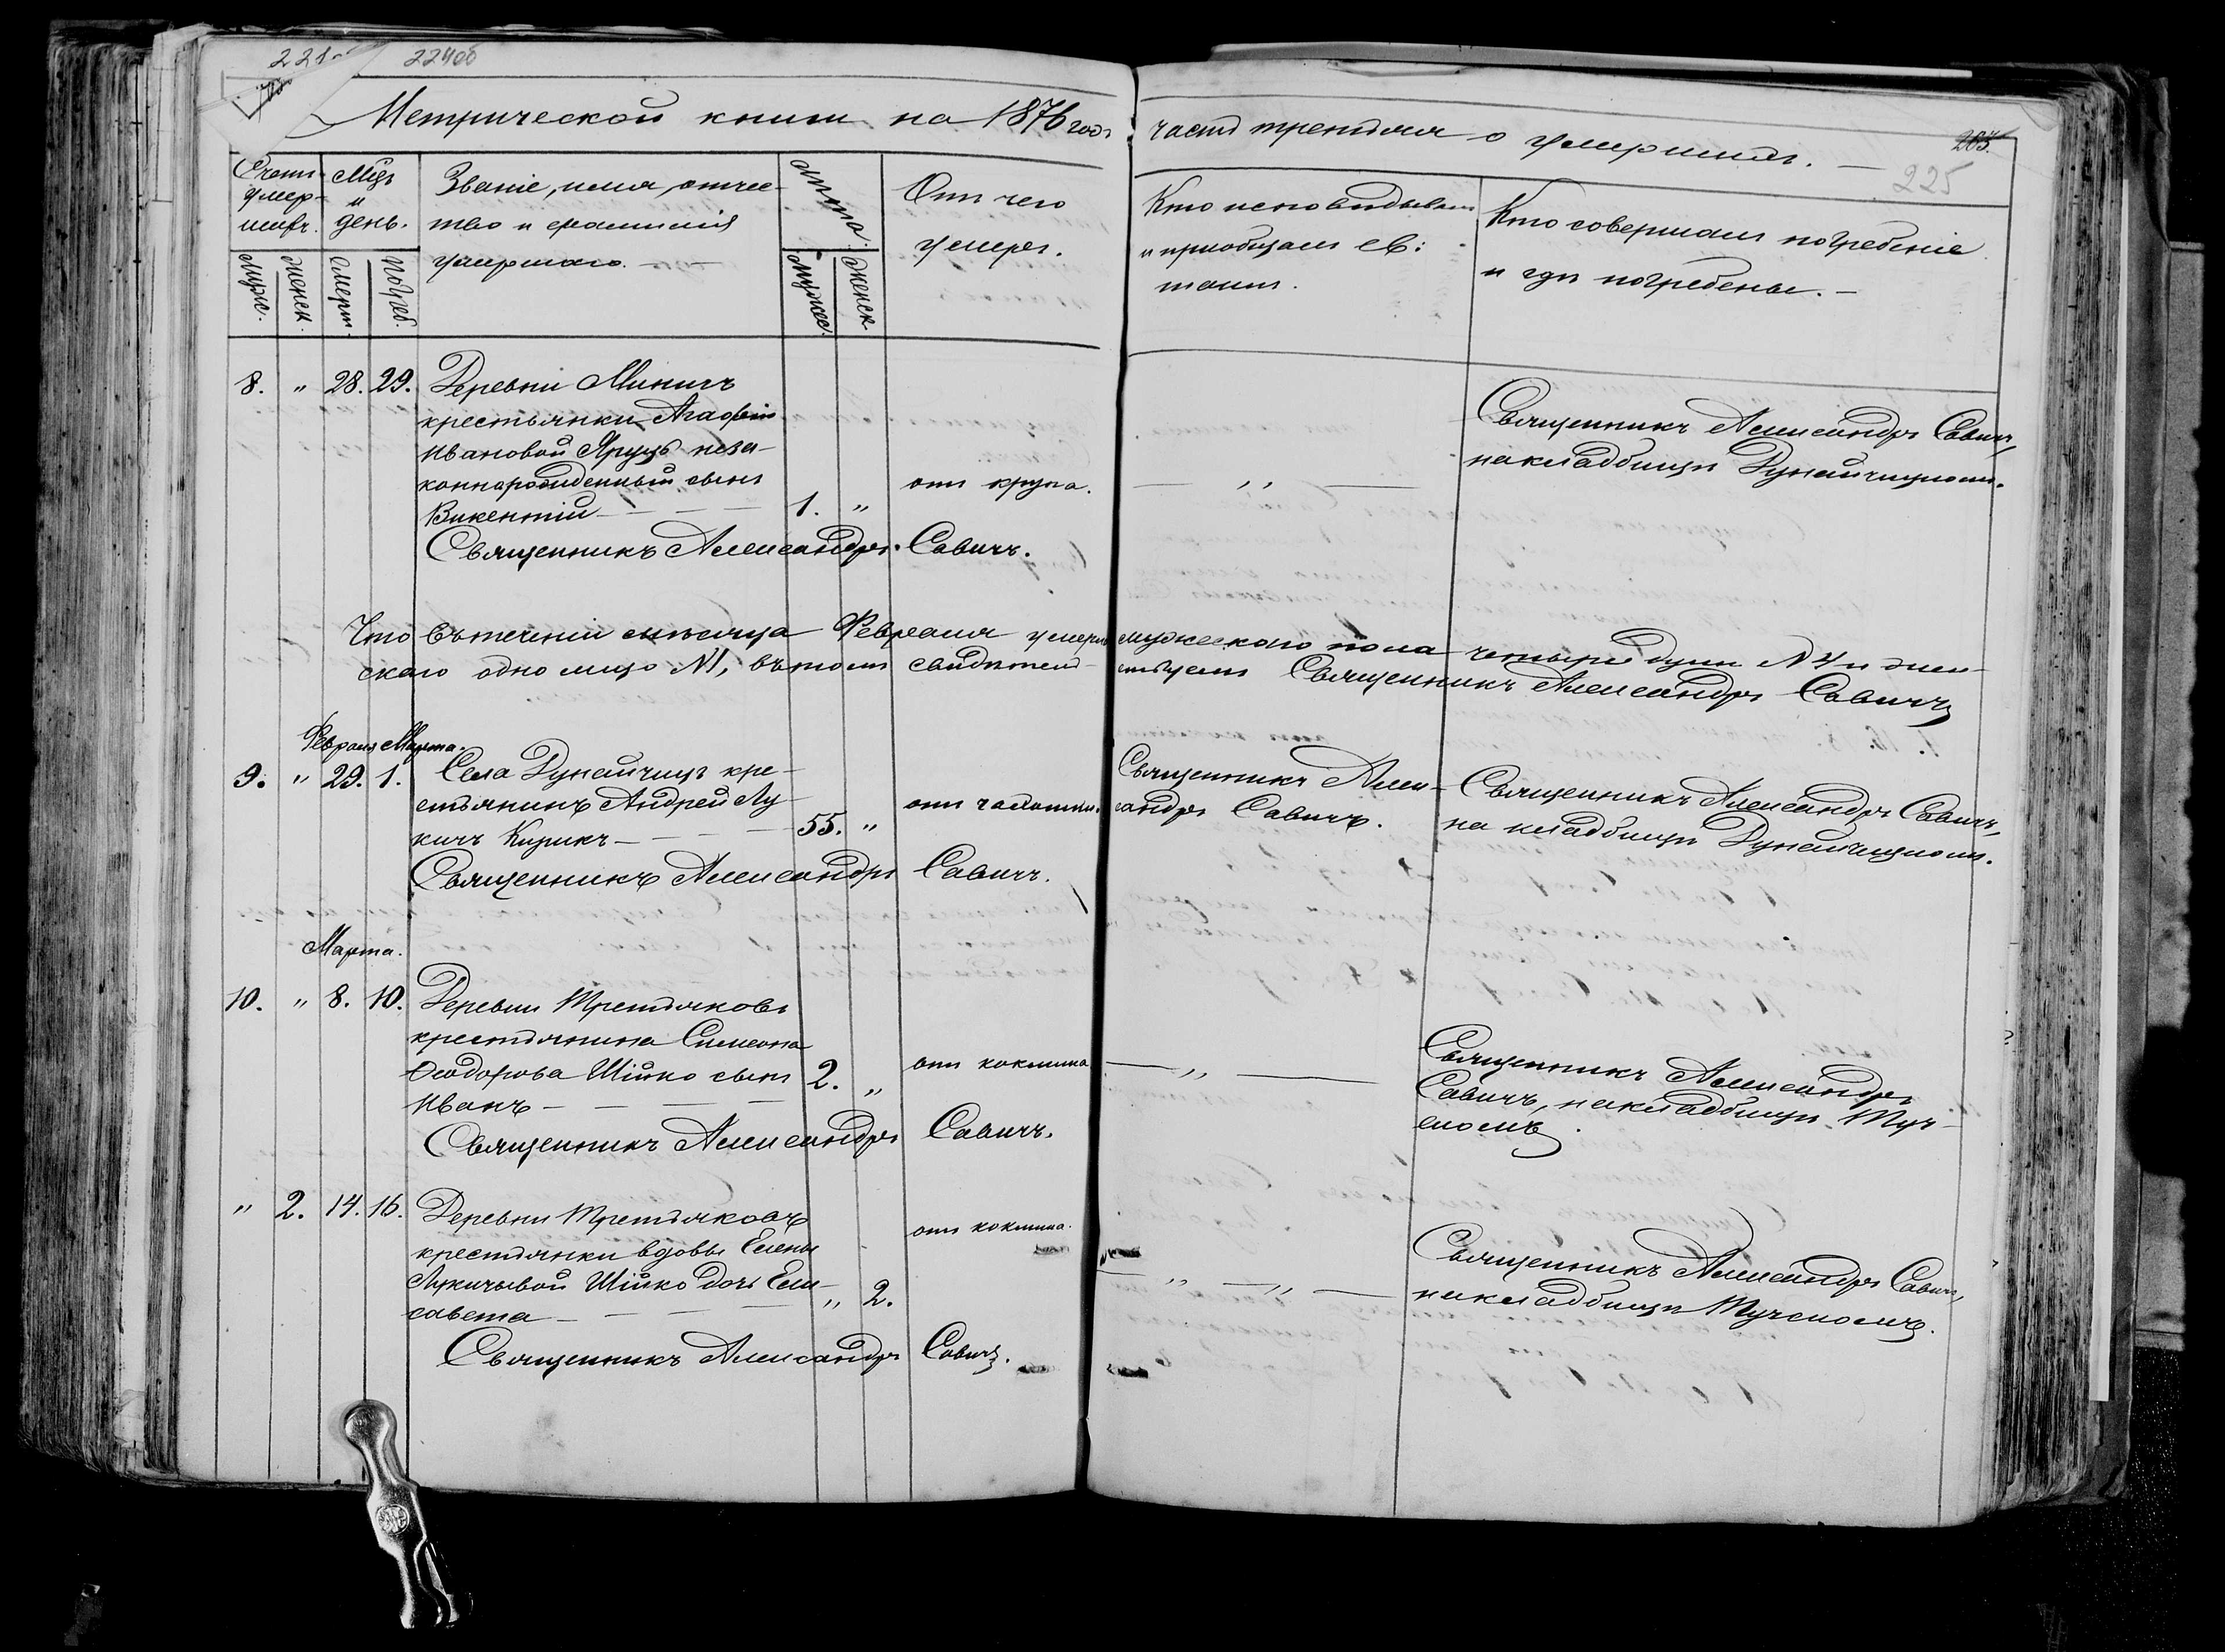 221
224об
Метрической книги на 1876 годъ
часть третія о умершихъ. —
203.
225
Счетъ умер-шихъ.
Мцъ и день.
Званіе, имя, отчес-
тво и фамилія
умершаго. —
Лѣта.
Отъ чего
умеръ.
Кто исповѣдывалъ
и пріобщалъ св:
таинъ.
Кто совершалъ погребеніе
и гдѣ погребены. —
Муж. Женск. Смерт. Погреб.
Мужес. Женск.
8. „ 28. 29. Деревни Миничъ
крестьянки Агафіи
Ивановой Яруцъ неза-
коннорожденный сынъ
Викентій — — — — 1. „
отъ крупа.
— „ —
Священникъ Александръ Савичъ,
на кладбищѣ Дунайчицкомъ.
Священникъ Александръ Савичъ.
Что въ теченіи мѣсяца Февраля умерло мужескаго пола четыре души №4 и жен-
скаго одно лицо №1, въ томъ свидѣтельствуемъ Священникъ Александръ Савичъ
Февраля Марта.
9. „ 29. 1. Села Дунайчицъ кре-
стьянинъ Андрей Лу-
кичъ Кирикъ — — — 55. „
отъ чахотки.
Священникъ Алек-
сандръ Савичъ.
Священникъ Александръ Савичъ,
на кладбищѣ Дунайчицкомъ.
Священникъ Александръ Савичъ.
Марта.
10. „ 8. 10. Деревни Третьяковъ
крестьянина Симеона
Ѳеодорова Шійко сынъ 2. „
Иванъ — — — —
отъ коклюша
— „ —
Священникъ Александръ
Савичъ, на кладбищѣ Туч-
скомъ.
Священникъ Александръ Савичъ.
„ 2. 14. 16. Деревни Третьяковъ
крестьянки вдовы Елены
Лукичывой Шійко дочь Ели-
савета — — — — „ 2.
отъ коклюша.
— „ — „ —
Священникъ Александръ Савичъ,
на кладбищѣ Тучскомъ.
Священникъ Александръ Савичъ.